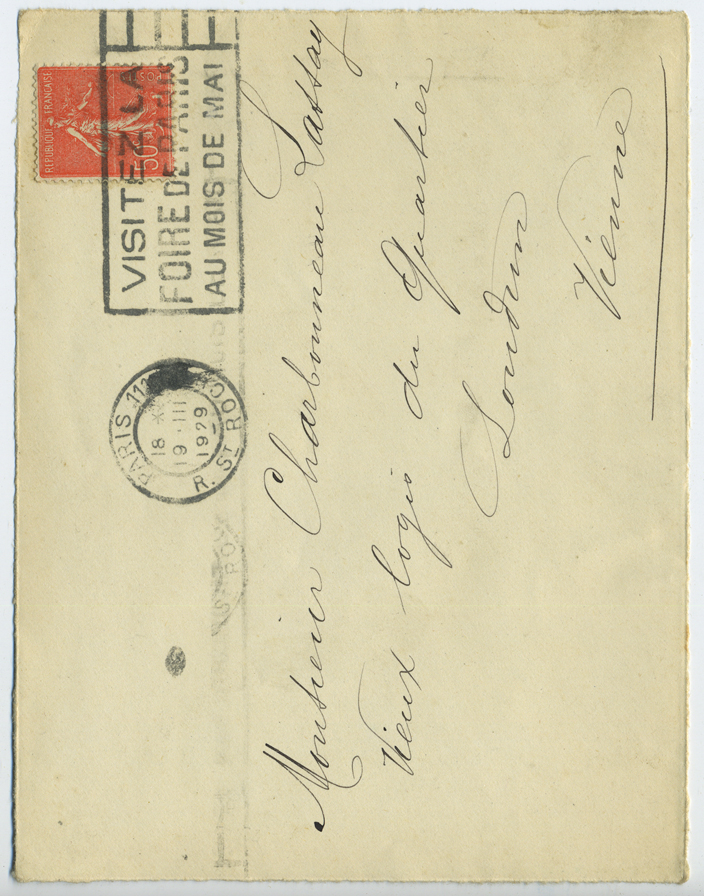 REPUBLIQUE FRANÇAISE
50
VISITEZ LA
FOIRE DE PARIS
AU MOIS DE MAI
PARIS
18 *
19 · III
1929
R. ST ROCH
Monsieur Charbonneau Lassay
Vieux logis du Quartier
Loudun
Vienne